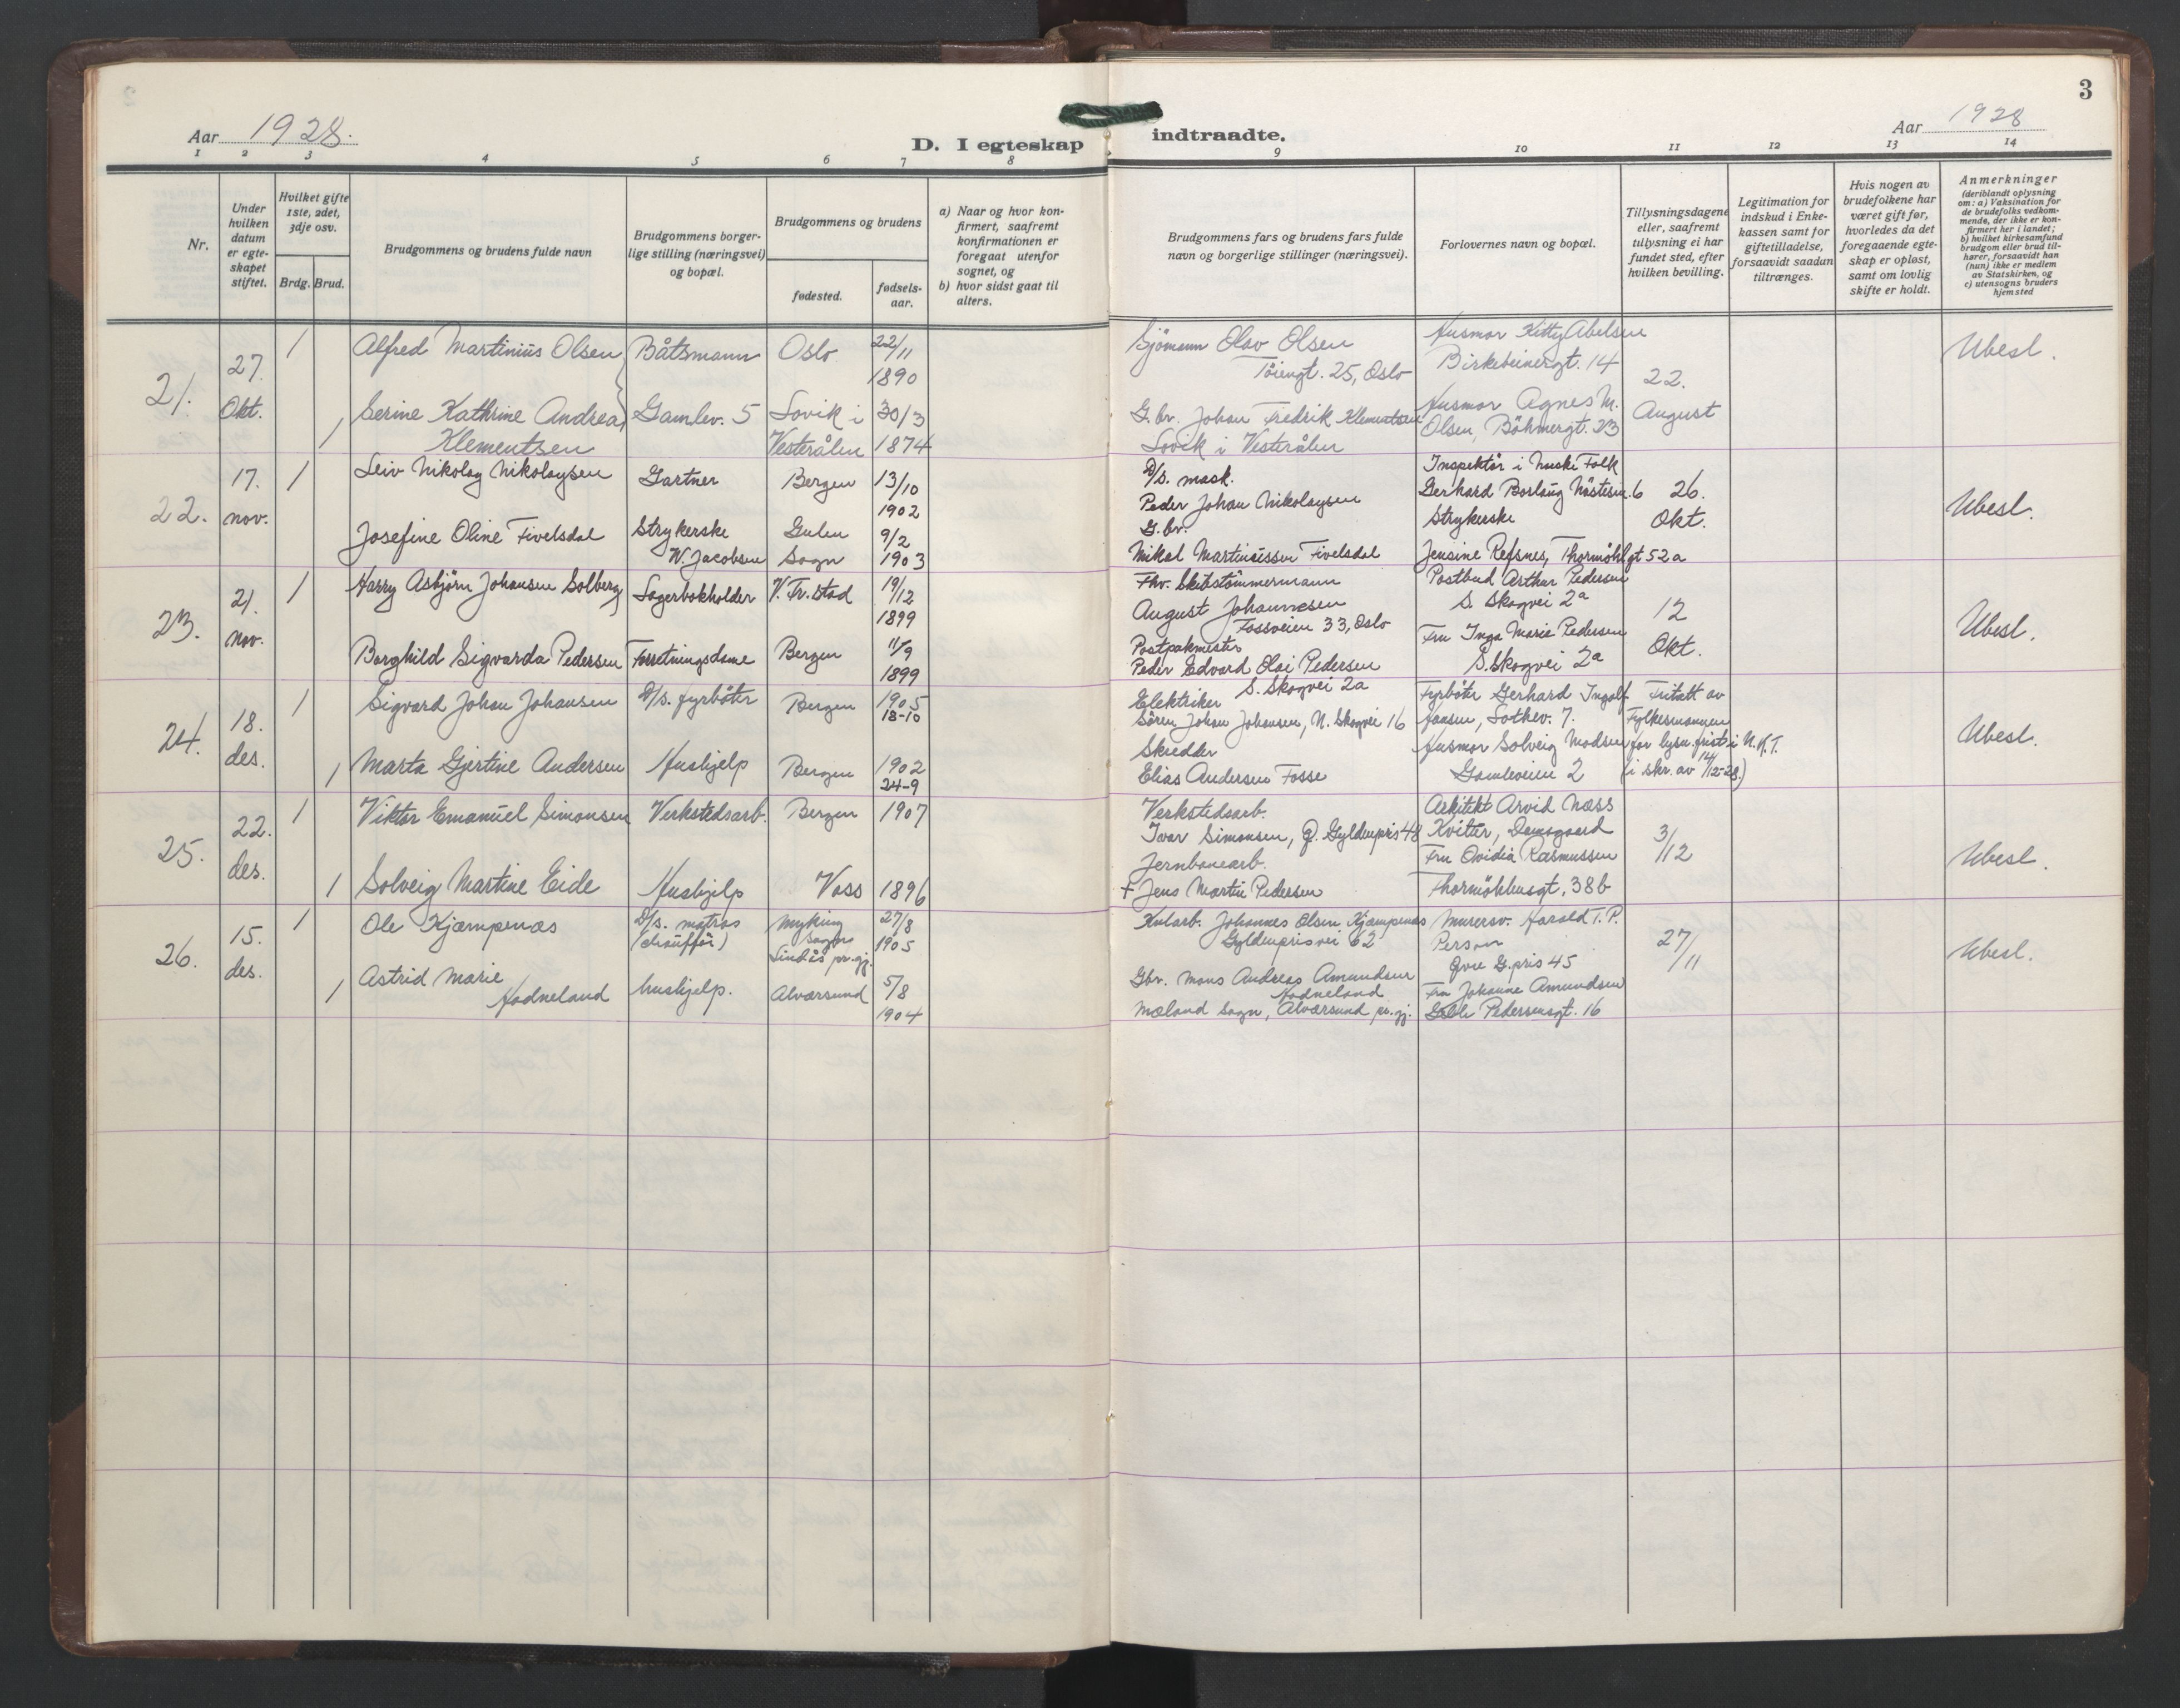 3
Aar 1928.
D. I egteskap indtraadte.
Aar 1928
1 2 3 4 5 6 7 8 9 10 11 12 13 14
Nr.
Under hvilken datum er egteskapet stiftet.
Hvilket gifte 1ste, 2det, 3dje osv.
Brdg. Brud.
Brudgommens og brudens fulde navn
Brudgommens borgerlige stilling (næringsvei) og bopæl.
Brudgommens og brudens
fødested.
fødselsaar.
a) Naar og hvor konfirmert, saafremt konfirmationen er foregaat utenfor sognet, og
b) hvor sidst gaat til alters.
Brudgommens fars og brudens fars fulde navn og borgerlige stillinger (næringsvei).
Forlovernes navn og bopæl.
Tillysningsdagene eller, saafremt tillysning ei har fundet sted, efter hvilken bevilling.
Legitimation for indskud i Enkekassen samt for giftetilladelse, forsaavidt saadan tiltrænges.
Hvis nogen av brudefolkene har været gift før, hvorledes da det foregaaende egteskap er opløst, samt om lovlig skifte er holdt.
Anmerkninger
(deriblandt oplysning om: a) Vaksination for de brudefolks vedkommende, der ikke er konfirmert her i landet;
b) hvilket kirkesamfund brudgom eller brud tilhører, forsaavidt han (hun) ikke er medlem av Statskirken, og
c) utensogns bruders hjemsted
21. 27. Okt. 1 Alfred Martinius Olsen Båtsmann Oslo 22/11 1890
Sjömann Olav Olsen
Töiengt. 25, Oslo
Husmor Kitty Abelsen
Birkebeinergt. 14
22. August
Ubesl.
1 Serine Kathrine Andrea Klementsen Gamlev. 5 Lovik i Vesterålen 30/3 1874
G.br. Johan Fredrik Klementsen
Lovik i Vesterålen
Husmor Agnes M.
Olsen, Böhmergt. 23
22. 17. nov. 1 Leiv Nikolay Nikolaysen Gartner Bergen 13/10 1902
D/s. mask.
Peder Johan Nikolaysen
Inspektör i Norske Folk
Gerhard Borlaug Nöstesm. 6
26. Okt.
Ubesl.
Josefine Oline Fivelsdal Strykerske W. Jacobsen Gulen Sogn 9/2 1903
G.br.
Mikal Martinussen Fivelsdal
Strykerske
Jensine Refsnes, Thormöhlgt 52a
23. 21. nov. 1 Harry Asbjörn Johansen Solberg Lagerbokholder V. Fr.stad 19/12 1899
Fhv. Skibstömmermann
August Johannesen
Fossveien 33, Oslo
Postbud Arthur Pedersen
S. Skogvei 2a
12 Okt.
Ubesl.
Borghild Sigvarda Pedersen Forretningsdame Bergen 11/9 1899
Postpakmester
Peder Edvard Olai Pedersen
S. Skogvei 2a
Fru Inga Marie Pedersen
S. Skogvei 2a
24. 18. des. 1 Sigvard Johan Johansen D/s. fyrböter Bergen 1905 18-10
Elektriker
Sören Johan Johansen, N. Skogvei 16
Fyrböter Gerhard Ingolf
Hansen, Lothev. 7.
Fritatt av
Fylkesmannen
for lysn. frist i N.K.T.
(i skr. av 14/12-28.)
Ubesl.
1 Marta Gjertine Andersen Hushjelp Bergen 1902 24-9
Skredder
Elias Andersen Fosse
Husmor Solveig Madsen
Gamleveien 2
25. 22. des. 1 Viktor Emanuel Simonsen Verkstedsarb. Bergen 1907
Verkstedsarb.
Ivar Simonsen, Ø. Gyldenpris 48
Arkitekt Arvid Næss
Kviter, Damsgaard
3/12
Ubesl.
1 Solveig Martine Eide Hushjelp Voss 1896
Jernbanearb.
+ Jens Martin Pedersen
Fru Ovidia Rasmussen
Thormöhlensgt. 38b
26. 15. des. 1 Ole Kjæmpenæs D/s. matros (chaufför) Myking sogn Lindås pr.gj. 27/8 1905
Kularb. Johannes Olsen Kjæmpenæs
Gyldenprisvei 62
Murersv. Harald T. P.
Person
Øvre G.pris 45
27/11
Ubesl.
1 Astrid Marie Hodneland hushjelp. Alværsund 5/8 1904
Gbr. Mons Andreas Amundsen
Hodneland
Mæland sogn, Alværsund pr.gj.
Fru Johanne Amundsen
Gable Pedersensgt. 16